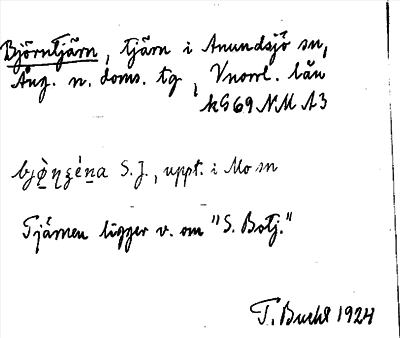 Björntjärn, tjärn i Anundsjö sn,
Ång. n. doms. tg, Vnorrl. län
kG69NMA3
S. J., uppt. i Mo sn
Tjärnen ligger v. om "S. Botj."
T. Bucht 1924